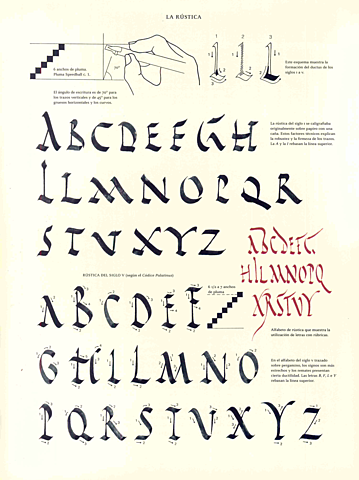 LA RÚSTICA
6 anchos de pluma.
Pluma Speedball C-1.
70°
1 2 3
Este esquema muestra la
formación del ductus de los
siglos I a V
El ángulo de escritura es de 70° para
los trazos verticales y de 45° para los
gruesos horizontales y los curvos.
La rústica del siglo I es caligrafiada
originalmente sobre papiro con una
caña. Estos factores técnicos explican
la robustez y la firmeza de los trazos.
La A y la I rebasan la línea superior.
ABCDEFGH
ILMNOPQR
STUVXYZ
ABCDEFG
HILMNOPQ
XRSTUY
RÚSTICA DEL SIGLO V (según el Codex Palatinus)
6 1/2 a 7 anchos
de pluma
ABCDEF
Alfabeto de rústica que muestra la
utilización de letras con rúbricas.
GHILMNO
En el alfabeto del siglo V trazado
sobre pergamino, los signos son más
estrechos y los remates presentan
cierta ductilidad. Las letras B, F, L e Y
rebasan la línea superior.
PQRSTUXYZ